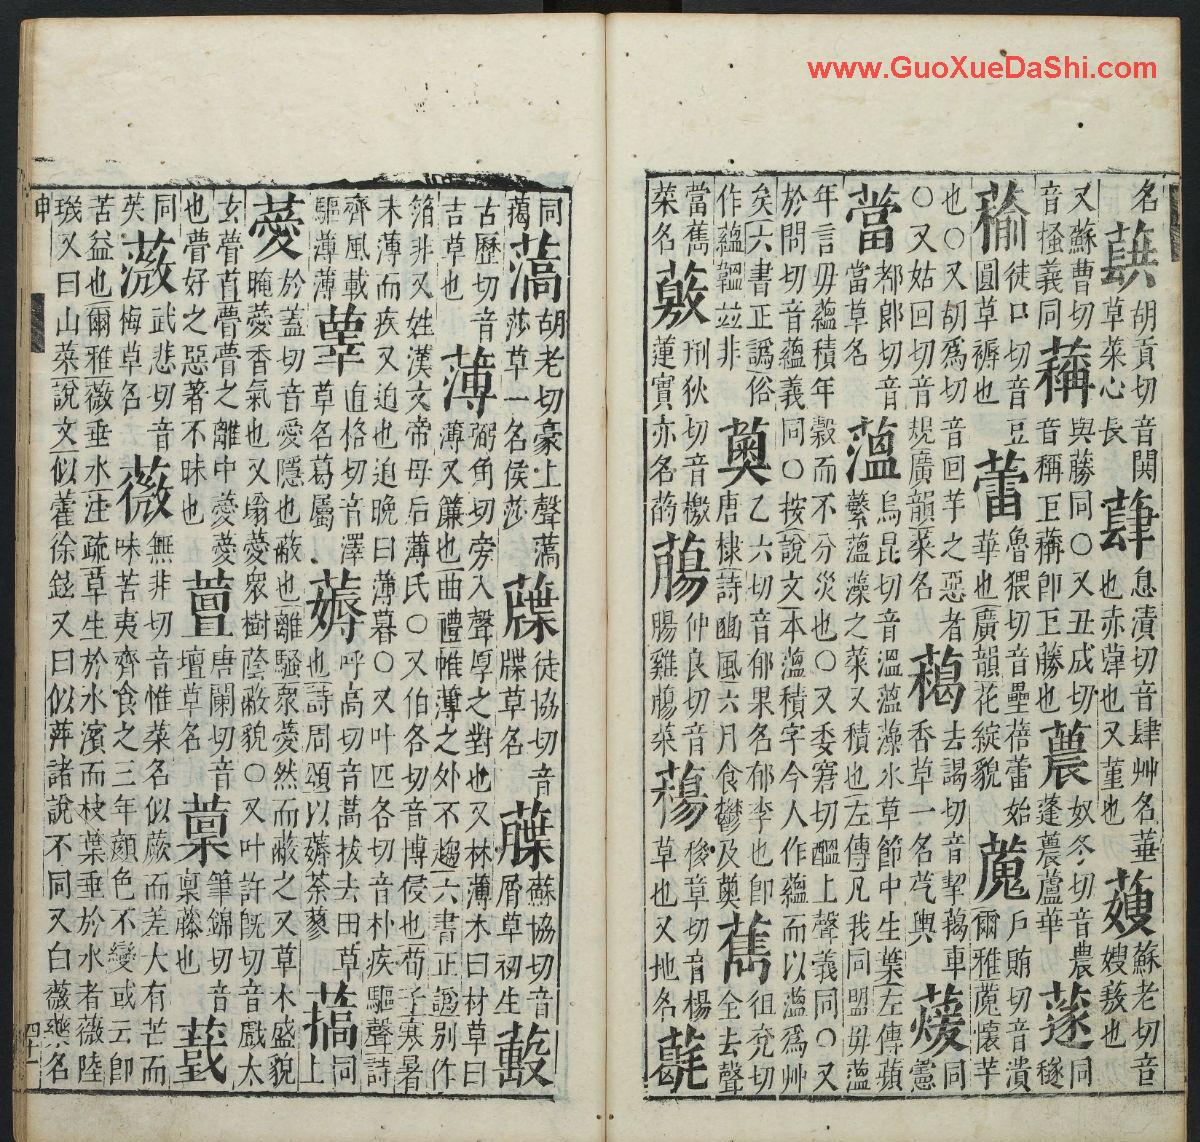 www.GuoXueDaShi.com
名蕻胡貢切音閧草菜心長蕼息漬切音肆艸名華也赤蕚也又菫也蓃蘇老切音嫂蔜也
又蘇曹切音搔義同䕝與藤同○又丑成切音稱王䕝卽王藤也蕽奴冬切音農蓬蕽蘆華蓫同穟
徒口切音豆圓草褥也蕾魯猥切音壘蓓蕾始華也廣韻花綻貌藱戶賄切音潰爾雅藱懷芋
也○又胡爲切音回芋之惡者○又姑回切音規廣韻菜名藒去謁切音挈藒車香草一名芞輿同憲
都郎切音當草名薀烏昆切音溫薀藻水草節中生葉左傳蘋蘩薀藻之菜又積也左傳凡我同盟毋薀
年言毋蘊積年穀而不分災也○又委窘切醞上聲義同○又於問切音蘊義同○按說文本薀積字今人作蘊而以薀爲艸
矣六書正譌俗作蘊韞竝非薁乙六切音郁果名郁李也卽唐棣詩豳風六月食鬱及薁徂兖切全去聲
菜名薂刑狄切音檄蓮實亦名菂仲良切音腸雞腸菜章切音楊草也又地名
同藹薃胡老切豪上聲薃莎草一名侯莎徒協切音牒草名蘇協切音屑草初生
古歷切音吉草也薄弼角切旁入聲厚之對也又林薄木曰材草曰薄又簾也曲禮帷薄之外不趨六書正譌別作
箔非又姓漢文帝母后薄氏○又伯各切音博侵也荀子寒暑未薄而疾又迫也迫晚曰薄暮○又叶匹各切音朴疾驅聲詩
齊風載驅薄薄蕇直格切音澤草名葛屬薅呼高切音蒿拔去田草也詩周頌以薅荼蓼同上
薆於蓋切音愛隱也蔽也離騷衆薆然而蔽之又草木盛貌晻薆香氣也又蓊薆衆樹蔭蔽貌○又叶許旣切音戲太
玄瞢首瞢瞢之離中薆薆也瞢好之惡著不昧也唐闌切音壇草名筆錦切音稟藤也
同英武悲切音梅草名薇無非切音惟菜名似蕨而差大有芒而味苦夷齊食之三年顔色不變或云卽
苦益也爾雅薇垂水注疏草生於水濱而枝葉垂於水者薇陸璣又曰山菜說文似藿徐鉉又曰似萍諸說不同又白薇藥名
申
四十一